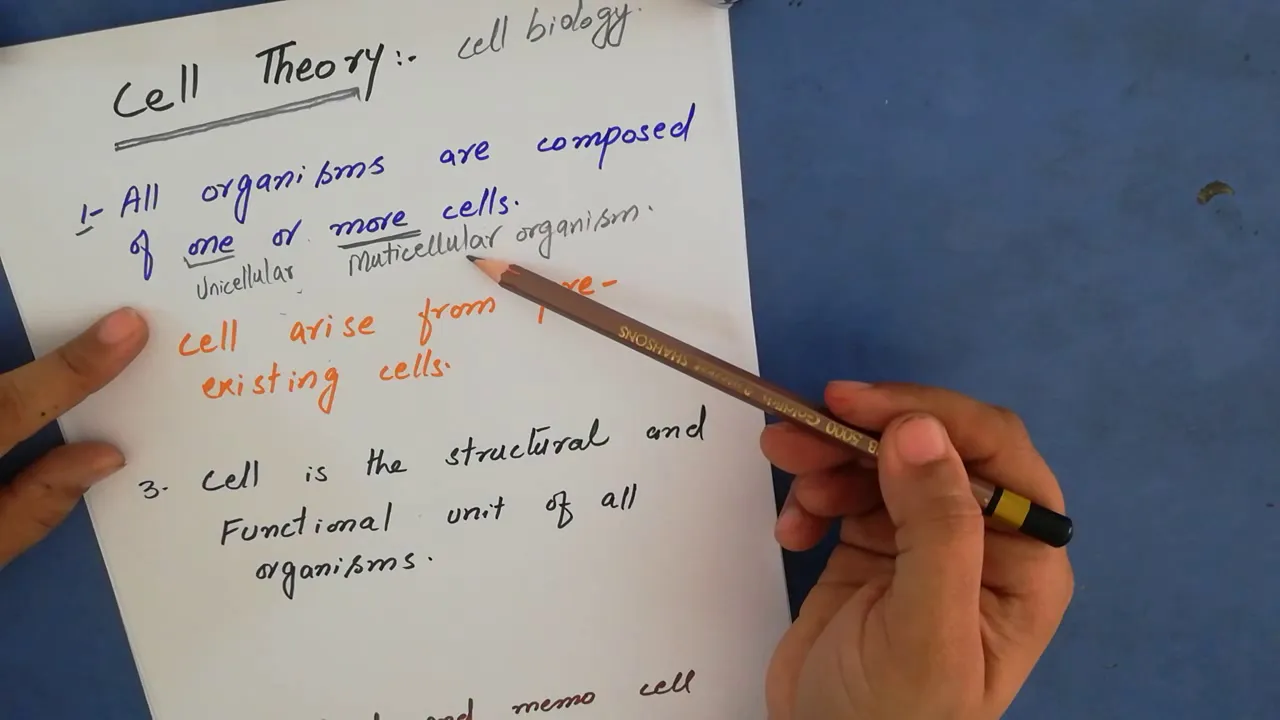 Cell Theory:- cell biology.
1- All organisms are composed
of one or more cells.
Unicellular Muticellular organism.
cell arise from pre-
existing cells.
3. Cell is the structural and
Functional unit of all
organisms.
and memo cell
SHAHSONS
5000